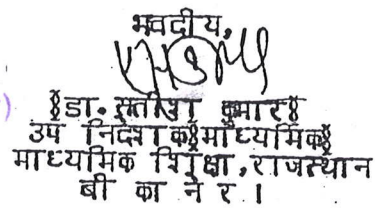 भवदीय,
§डा. सतीश कुमार§
उप निदेशक§माध्यमिक§
माध्यमिक शिक्षा, राजस्थान
बी का ने र ।